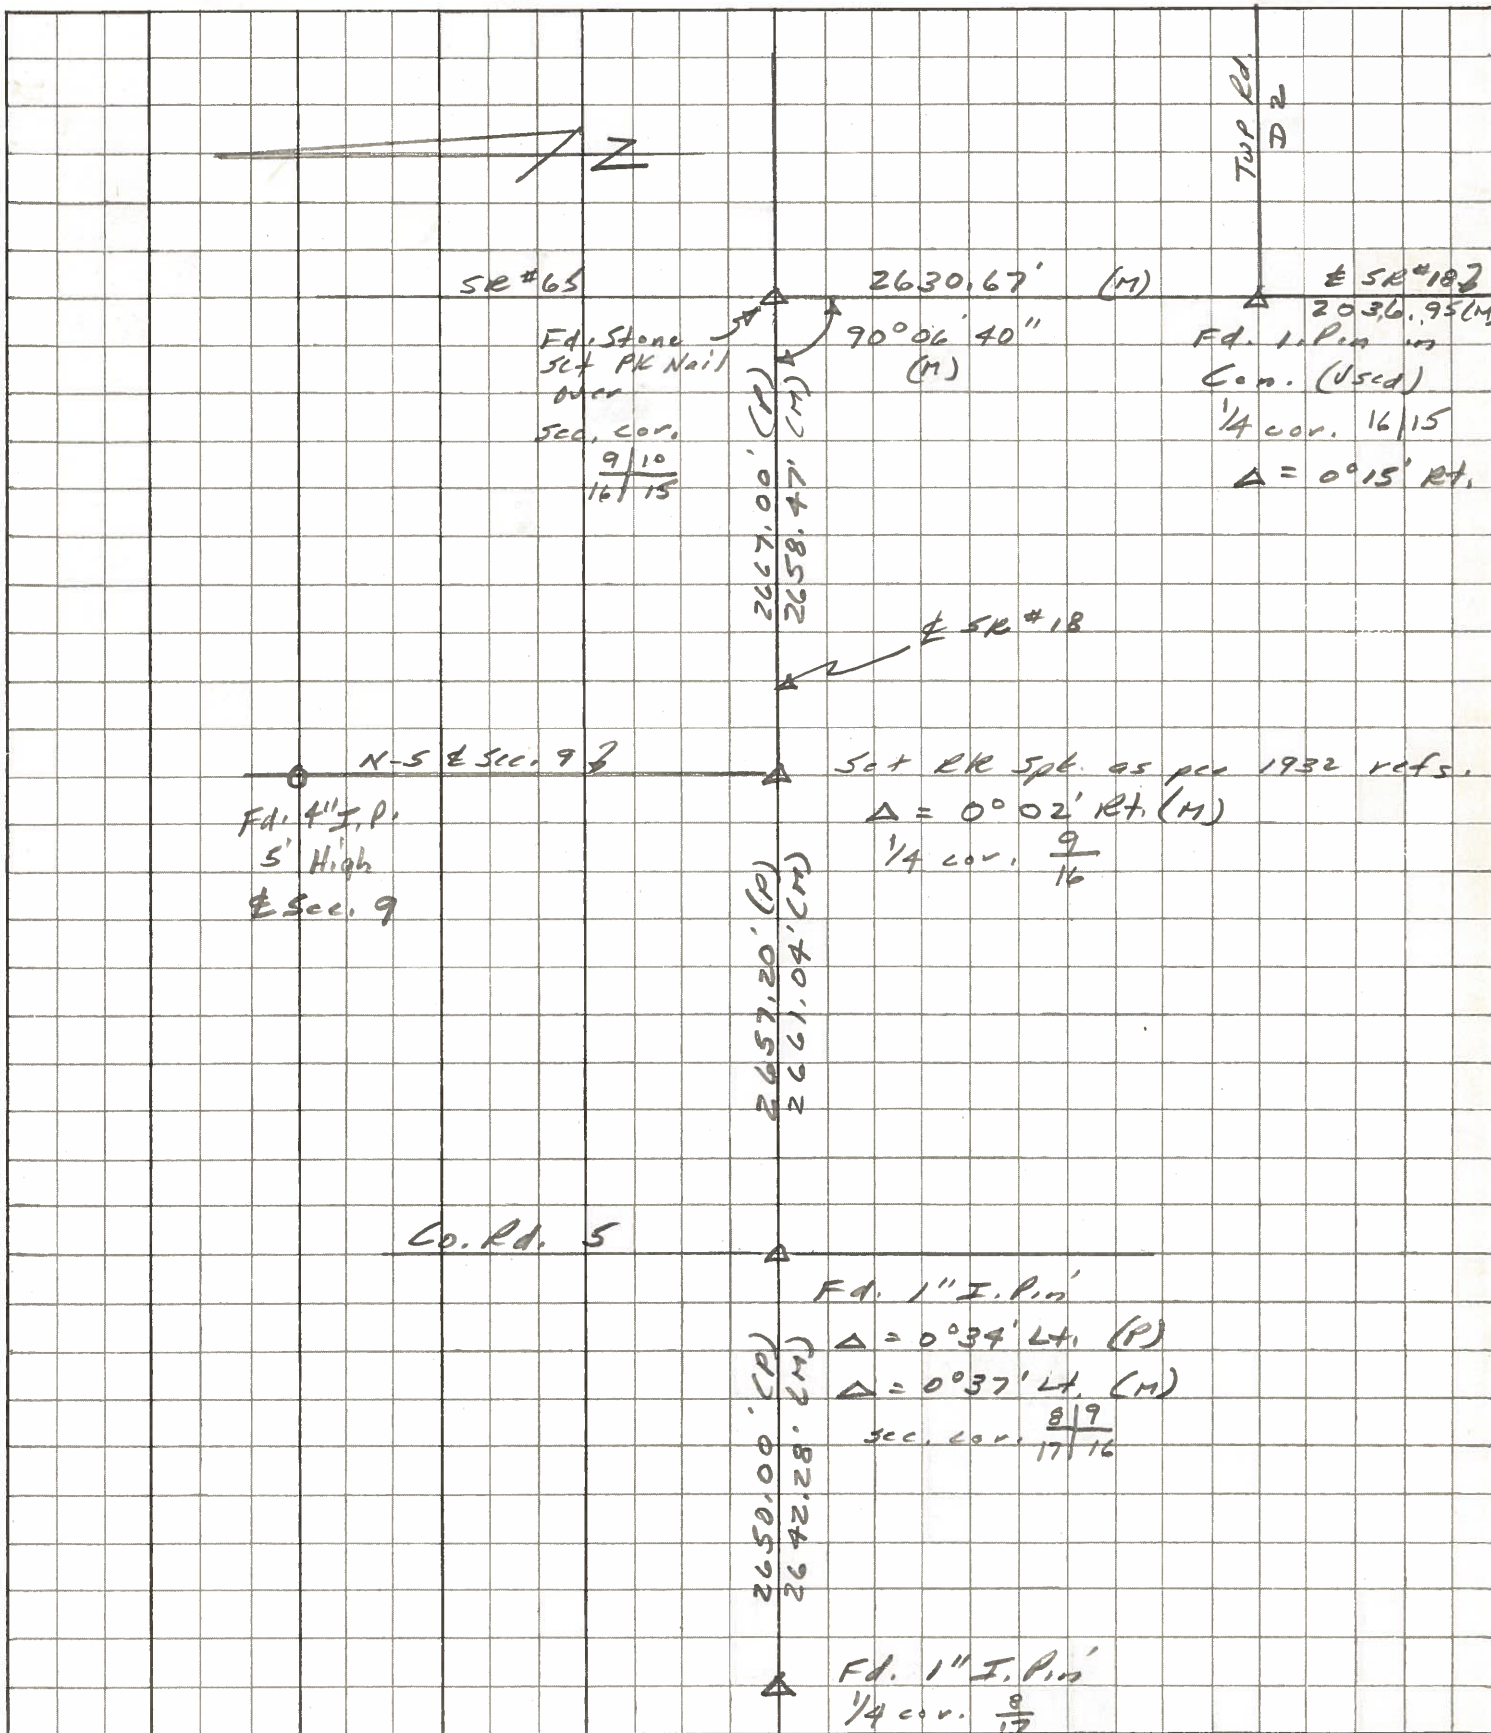 Twp Rd.
D2
N
SR #65
2630.67' (M)
℄ SR #18
2036.95 (M)
Fd. Stone
Set PK Nail
over
sec. cor.
9 | 10
16 | 15
90° 06' 40"
(M)
Fd. I. Pin in
Con. (Used)
1/4 cor. 16 | 15
Δ = 0° 15' Rt.
2667.00' (P)
2658.47' (M)
℄ SR #18
N-S ℄ Sec. 9
Set RR Spk. as per 1932 refs.
Δ = 0° 02' Rt. (M)
1/4 cor. 9/16
Fd. 4" I.P.
5' High
℄ Sec. 9
2657.20' (P)
2661.04' (M)
Co. Rd. 5
Fd. 1" I. Pin
Δ = 0° 34' Lt. (P)
Δ = 0° 37' Lt. (M)
sec. cor. 8 | 9
17 | 16
2650.00' (P)
2642.28' (M)
Fd. 1" I. Pin
1/4 cor. 8/17